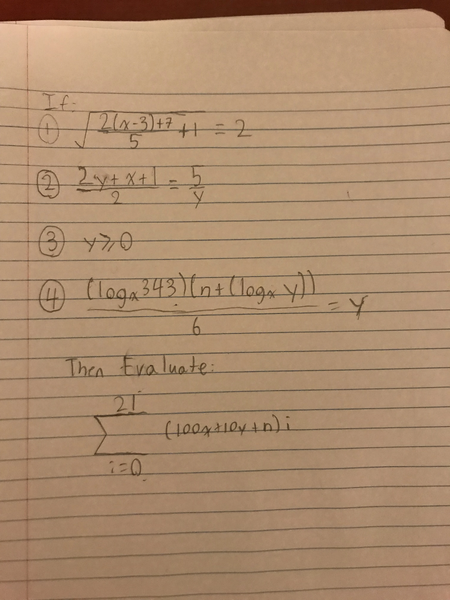 If:
① √(2(x-3)+7/5 +1) = 2
② 2y+x+1/2 = 5/y
③ y≥0
④ (logₓ343)(n+(logₓ y))/6 = y
Then Evaluate:
21
∑ (100x+10y+n)i
i=0